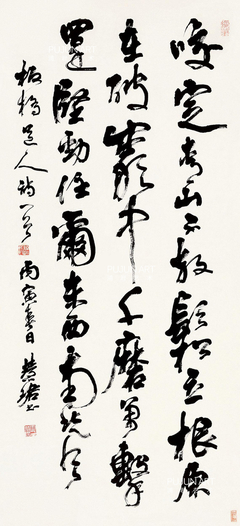 咬定青山不放鬆立根原
在破巖中千磨萬擊
還堅勁任爾東西南北風
板橋道人詩一首 丙寅春日